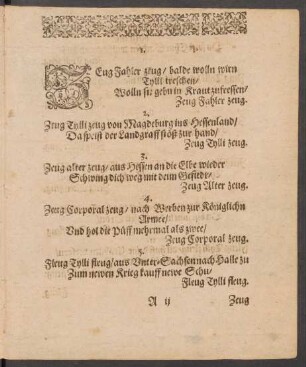 1.
ZEug Fahler zeug / balde wolln wirn
Tylli dreschen /
Wolln sie gebn in Kraut zufressen /
Zeug Fahler zeug.
2.
Zeug Tylli zeug von Magdeburg ins Hessenland /
Da speist der Landgraff stöst zur hand /
Zeug Tylli zeug.
3.
Zeug alter zeug / aus Hissen an die Elbe wieder
Schwing dich weg mit deim Gefider /
Zeug Alter zeug.
4.
Zeug Corporal zeug / nach Werben zur Königlichn
Armee /
Vnd hol die Püff mehemal als zwee /
Zeug Corporal zeug.
5.
Fleug Tylli fleug / aus Vnter-Sachsen nach Halle zu
Zum newen Krieg kauff newe Schu /
Fleug Tylli fleug.
A ij
Zeug